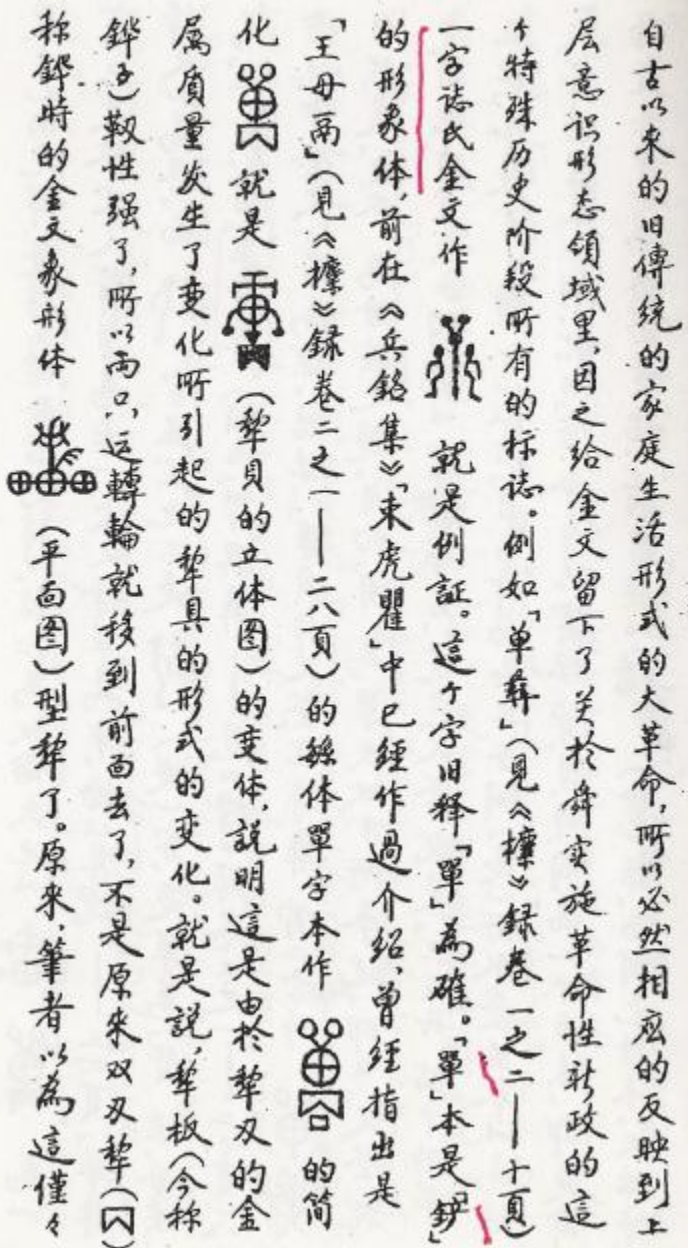 自古以来的旧傳统的家庭生活形式的大革命,所以必然相应的反映到上
层意识形态領域里,因之给金文留下了关於舜实施革命性新政的這
个特殊历史阶段所有的标誌。例如「单彝」(見《攈》録卷一之二——十頁)
一字誌氏金文作 就是例証。這个字旧释「單」為確。「單」本是「鏟」
的形象体,前在《兵銘集》「束虎瞿」中已經作過介紹,曾經指出是
「王母鬲」(見《攈》録卷二之一——二八頁)的繇体單字本作 的简
化 就是 (犂具的立体图)的变体,説明這是由於犂刃的金
属质量发生了变化所引起的犂具的形式的变化。就是説,犂板(今称
鏵子)靱性强了,所以两只运轉輪就移到前面去了,不是原来双刃犂( )
称鏵時的金文象形体 (平面图)型犂了。原来,筆者以為這僅々